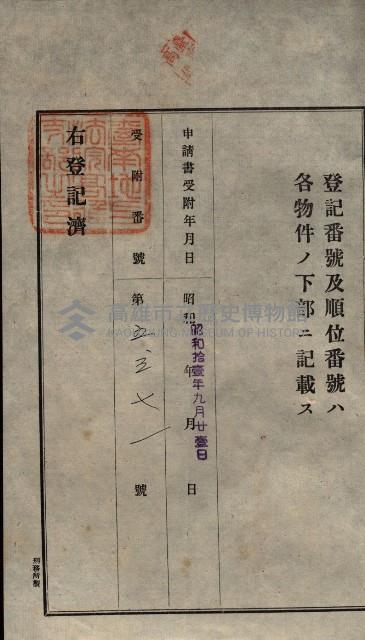 登記番號及順位番號ハ
各物件ノ下部ニ記載ス
申請書受附年月日 昭和 年 月 日
昭和拾壹年九月廿壹日
受附番號 第五三七一號
右登記濟
刑務所製
高雄市立歷史博物館
KAOHSIUNG MUSEUM OF HISTORY